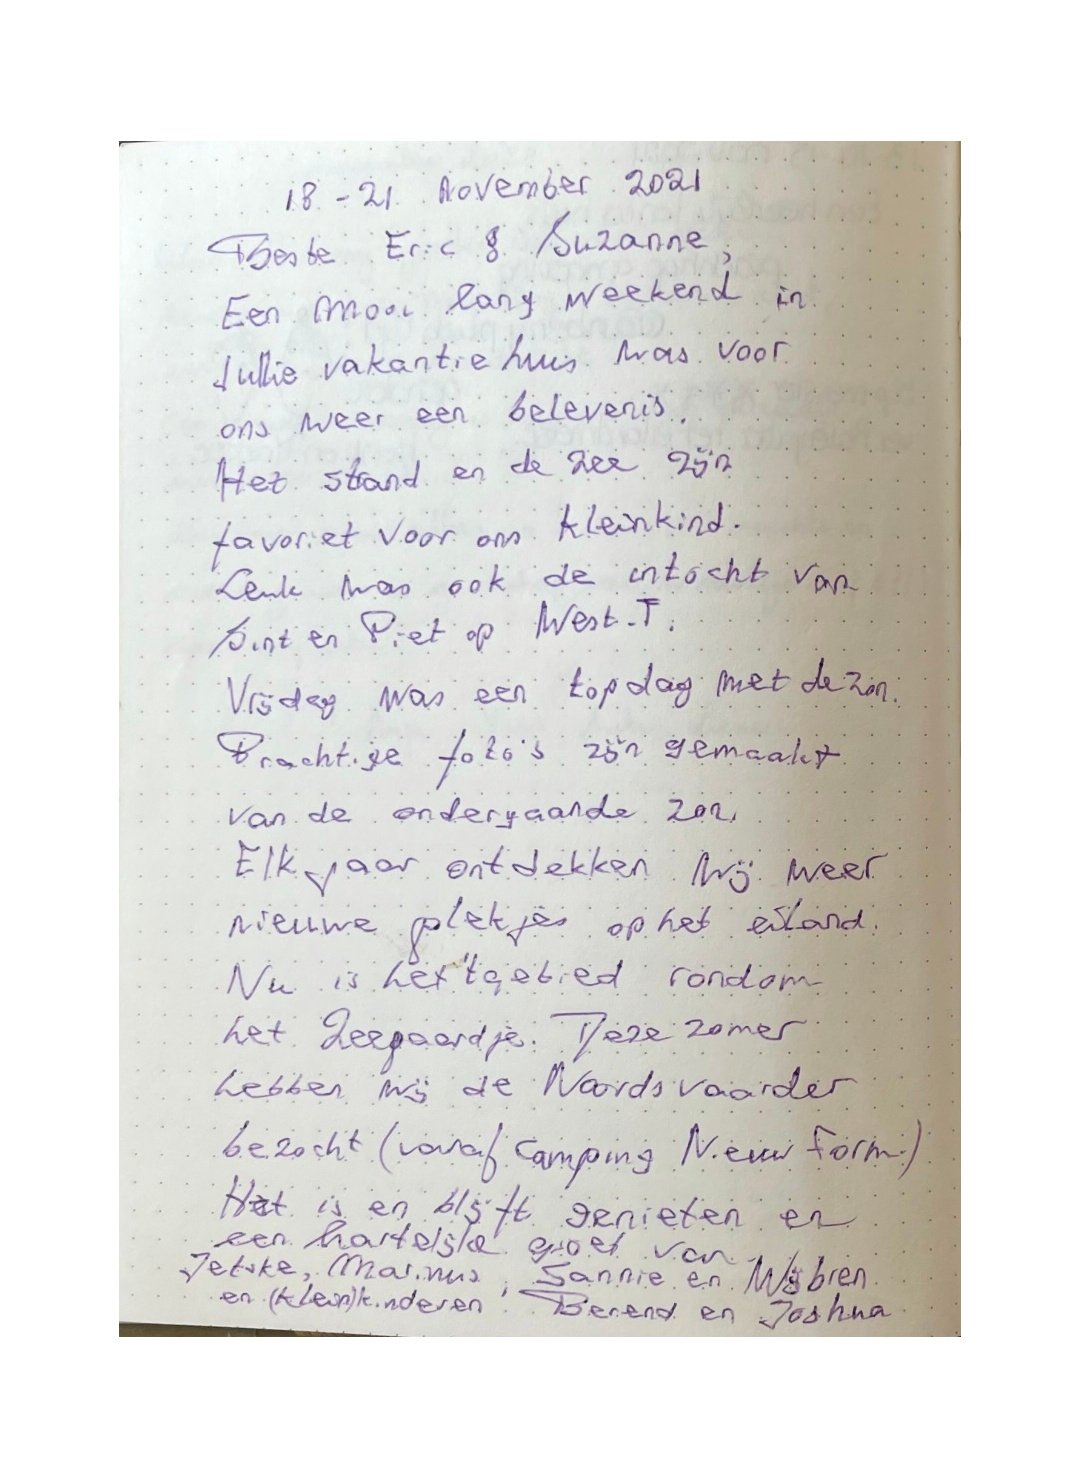 18 - 21 November 2021
Beste Eric & Suzanne,
Een mooi lang weekend in
Jullie vakantiehuis was voor
ons weer een belevenis.
Het strand en de zee zijn
favoriet voor ons kleinkind.
Leuk was ook de intocht van
Sint en Piet op West-T.
Vrijdag was een topdag met de zon.
Prachtige foto's zijn gemaakt
van de ondergaande zon.
Elk jaar ontdekken wij weer
nieuwe plekjes op het eiland.
Nu is het 't gebied rondom
het Zeepaardje. Deze zomer
hebben wij de Noordsvaarder
bezocht (vanaf camping Nieuw Form.)
Het is en blijft genieten en
een hartelijke groet van
Jetske, Marinus, Sannie en Wijbren
en (klein)kinderen Berend en Joshua